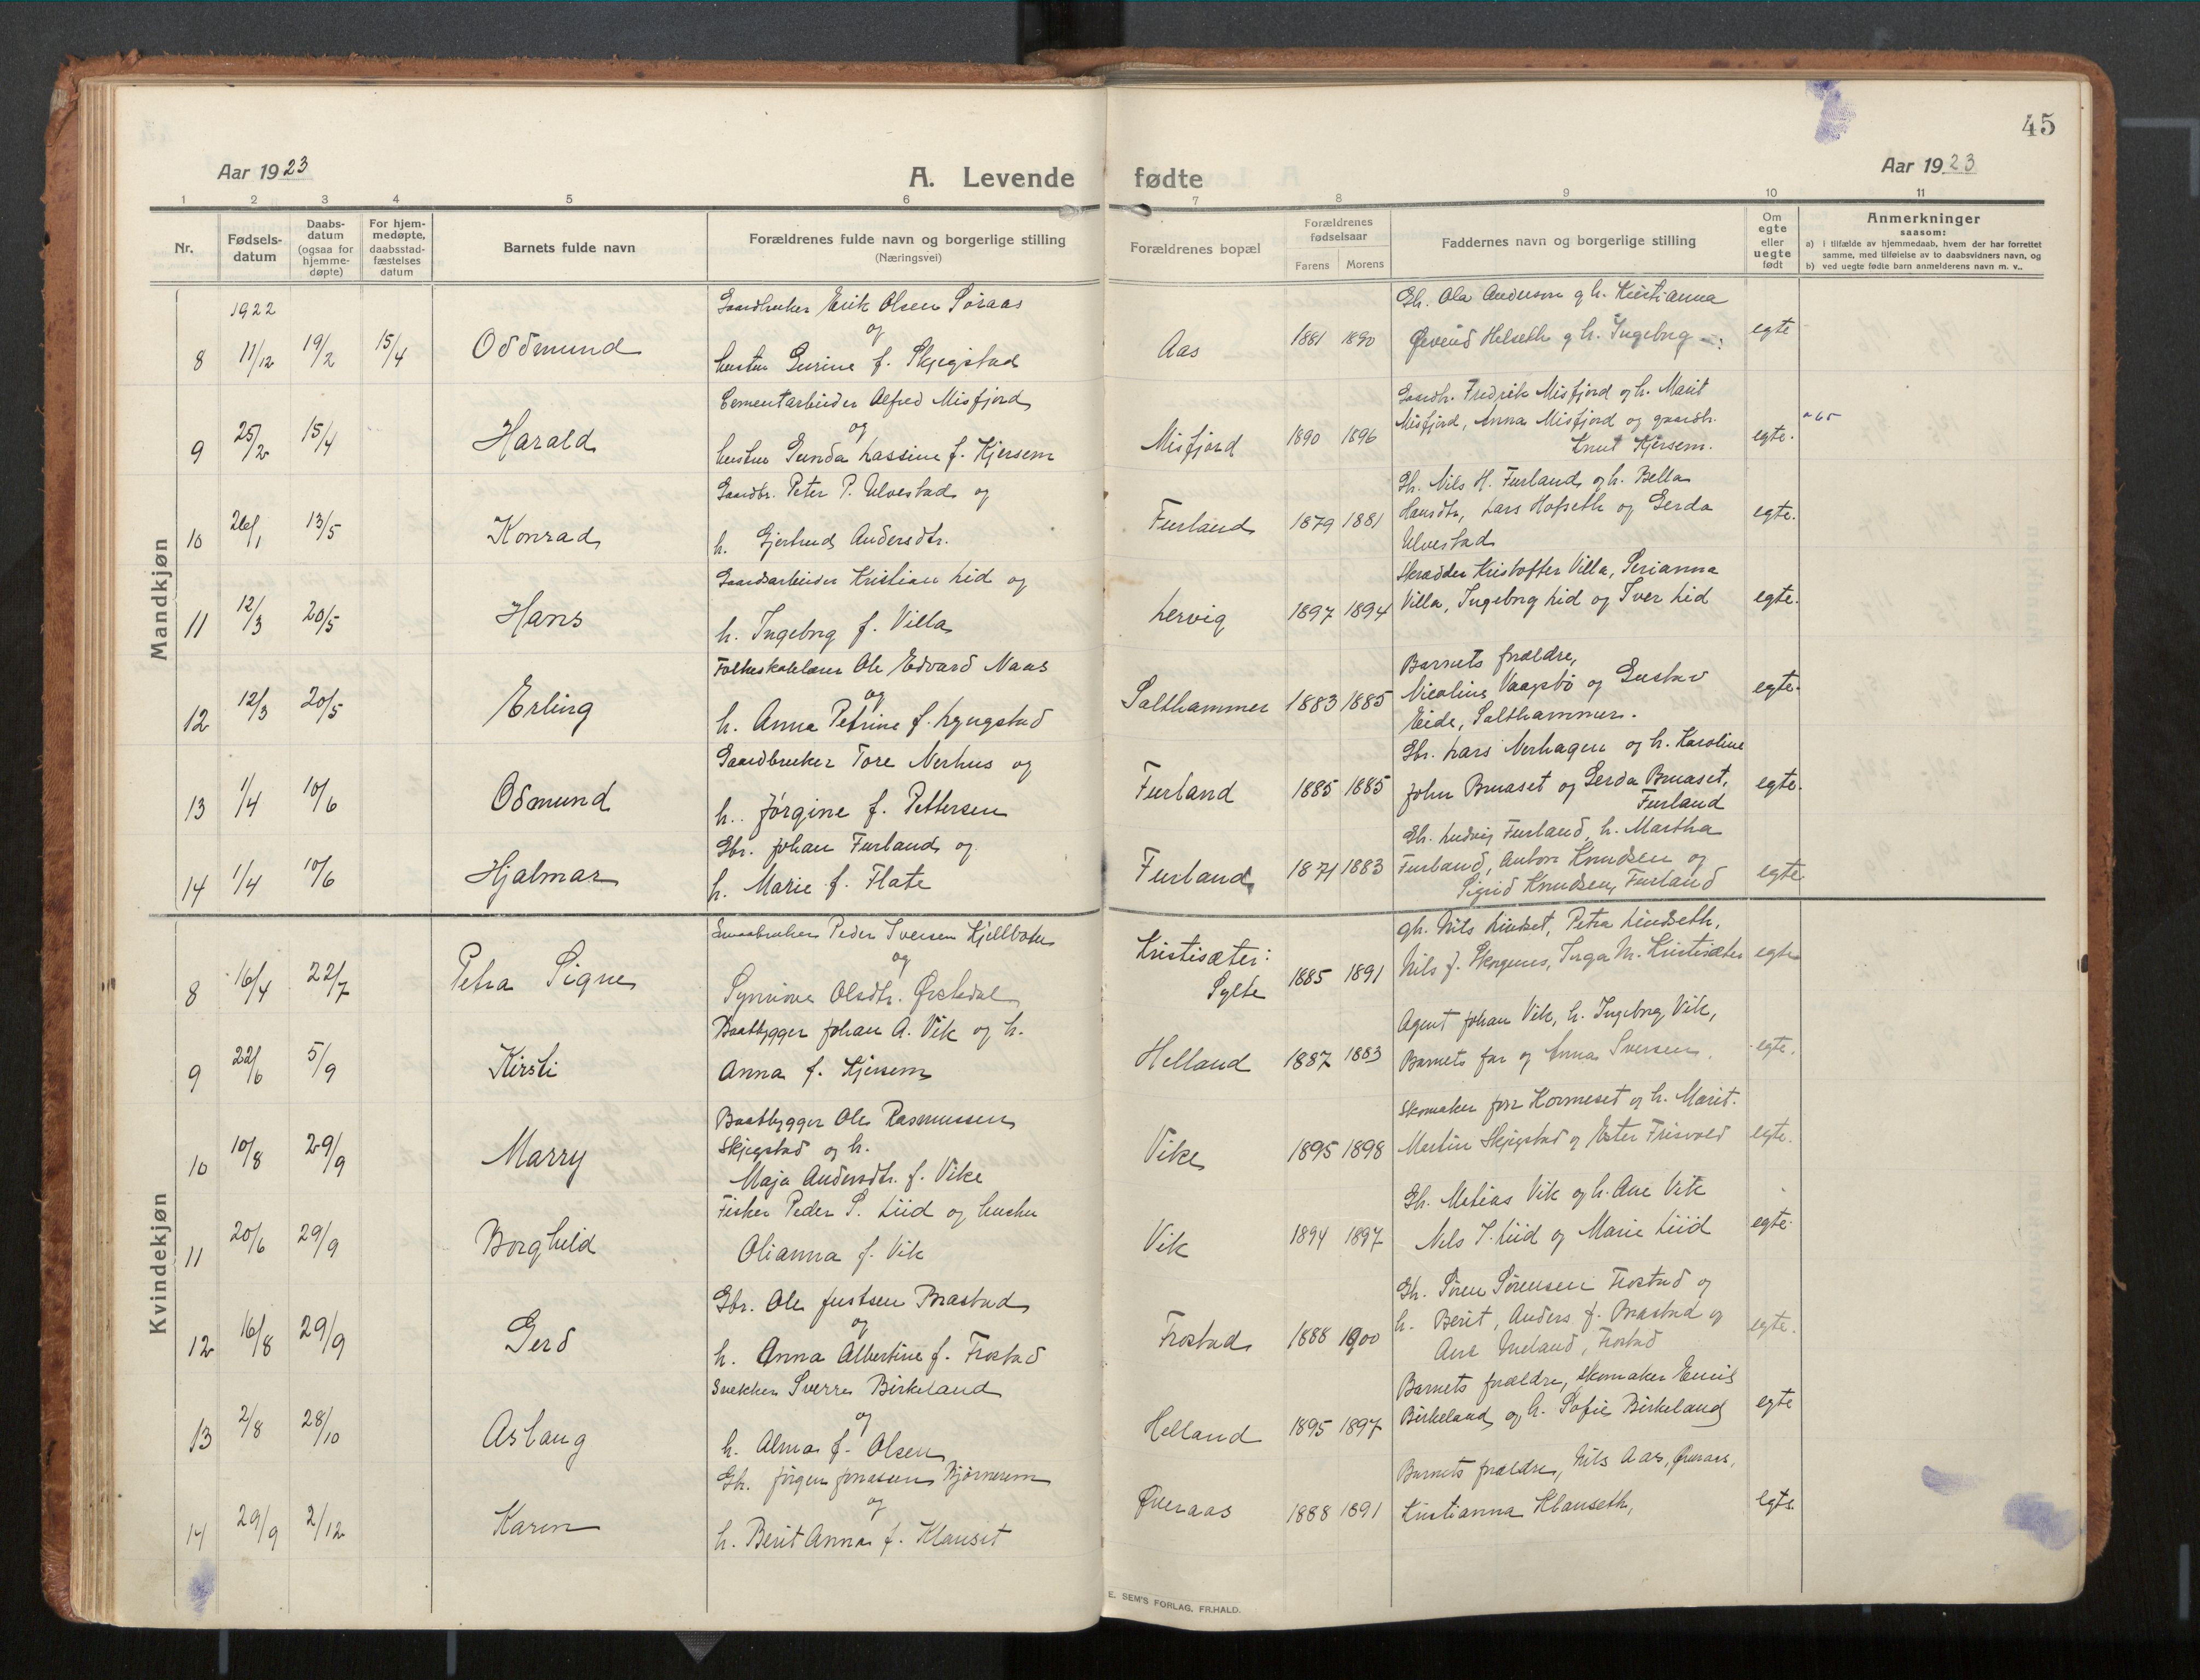 45
Aar 1923
A. Levende fødte
Aar 1923
1 2 3 4 5 6 7 8 9 10 11
Nr.
Fødsels-
datum
Daabs-
datum
(ogsaa for
hjemme-
døpte)
For hjem-
medøpte,
daabsstad-
fæstelses
datum
Barnets fulde navn
Forældrenes fulde navn og borgerlige stilling
(Næringsvei)
Forældrenes bopæl
Forældrenes
fødselsaar
Farens Morens
Faddernes navn og borgerlige stilling
Om
egte
eller
uegte
født
Anmerkninger
saasom:
a) i tilfælde av hjemmedaab, hvem der har forrettet
samme, med tilføielse av to daabsvidners navn, og
b) ved uegte fødte barn anmelderens navn m. v..
Mandkjøn
1922
8 11/12 19/2 15/4 Oddmund
Gaardbruker Erik Olsen Søraas
og
hustru Gurine f. Skjegstad
Aas 1881 1890
Gb. Ola Anderson g h. Kristianna
Øveind Helseth g h. Ingebrg
egte
9 25/2 15/4 Harald
Cementarbeider Alfred Misfjord
og
hustru Gunda Lassine f. Kjersem
Misfjord 1890 1896
Gaardb. Fredrik Misfjord og h. Marit
Misfjord, Anna Misfjord og gaardb.
Knut Kjersem.
egte.
10 26/1 13/5 Konrad
Gaardbr. Peter P. Ulvestad og
h. Gjertrud Andersdtr.
Furland 1879 1881
Gb. Nils H. Furland og h. Bella
Hansdtr, Lars Hofseth og Gerda
Ulvestad
egte.
11 12/3 20/5 Hans
Gaardsarbeider Kristian Lid og
h. Ingebrg f. Villa
Lervig 1897 1894
Skrædder Kristoffer Villa, Serianna
Villa, Ingebrg Lid og Iver Lid
egte.
12 12/3 20/5 Erling
Folkeskolelærer Ole Edvard Naas
og
h. Anna Petrine f. Lyngstad
Salthammer 1883 1885
Barnets forældre,
Nicoline Vaagsbø og Gustav
Eide, Salthammer.
egte.
13 1/4 10/6 Odmund
Gaardbruker Tore Nerhus og
h. Jørgine f. Pettersen
Furland 1885 1885
Gbr. Lars Nerhagen og h. Karoline
John Bruaset og Gerda Bruaset,
Furland
egte.
14 1/4 10/6 Hjalmar
Gbr. Johan Furland og
h. Marie f. Flate
Furland 1871 1883
Gb. Ludvig Furland, h. Martha
Furland, Anton Knudsen og
Sigrid Knudsen, Furland
egte
Kvindekjøn
8 16/4 22/7 Petra Signe
Smaabruker Peder Iversen Kjellbotn
og
Synnøve Olsdtr. Ørstedal
Kristisæter:
Sylte
1885 1891
gb. Nils Lindset, Petra Lindseth,
Nils J. Skorgenes, Inga M. Kristisæter
egte
9 22/6 5/9 Kirsti
Baatbygger Johan A. Vik og h.
Anna f. Kjersem
Helland 1887 1883
Agent Johan Vik, h. Ingebrg Vik,
Barnets far og Anna Iversen.
egte.
10 10/8 29/9 Marry
Baatbygger Ole Rasmussen
Skjegstad og h.
Maja Andersdtr. f. Vike
Vike 1895 1898
Skomaker Joar Hormeset og h. Marit.
Martin Skjegstad og Ester Frisvold
egte.
11 20/6 29/9 Borghild
Fisker Peder S. Liid og hustru
Olianna f. Vik
Vik 1894 1897
Gb. Matias Vik og h. Ane Vik
Nels I. Liid og Marie Liid
egte.
12 16/8 29/9 Gerd
Gbr. Ole Justsen Brastad
og
h. Anna Albertine f. Frostad
Frostad 1888 1900
Gb. Søren Sørensen Frostad og
h. Berit, Anders J. Brastad og
Ane Uneland, Frostad
egte.
13 2/8 28/10 Aslaug
Snekker Sverre Birkeland
og
h. Alma f. Olsen
Helland 1895 1897
Barnets forældre, skomaker
Birkeland og h. Sofie Birkeland
egte
14 29/9 2/12 Karen
Gb. Jørgen Jonassen Bjørnerem
og
h. Berit Anna f. Klauset
Øveraas 1888 1891
Barnets forældre, Nils Aas, Øveraas,
Kristianna Klauseth,
egte.
E. SEM'S FORLAG, FR.HALD.